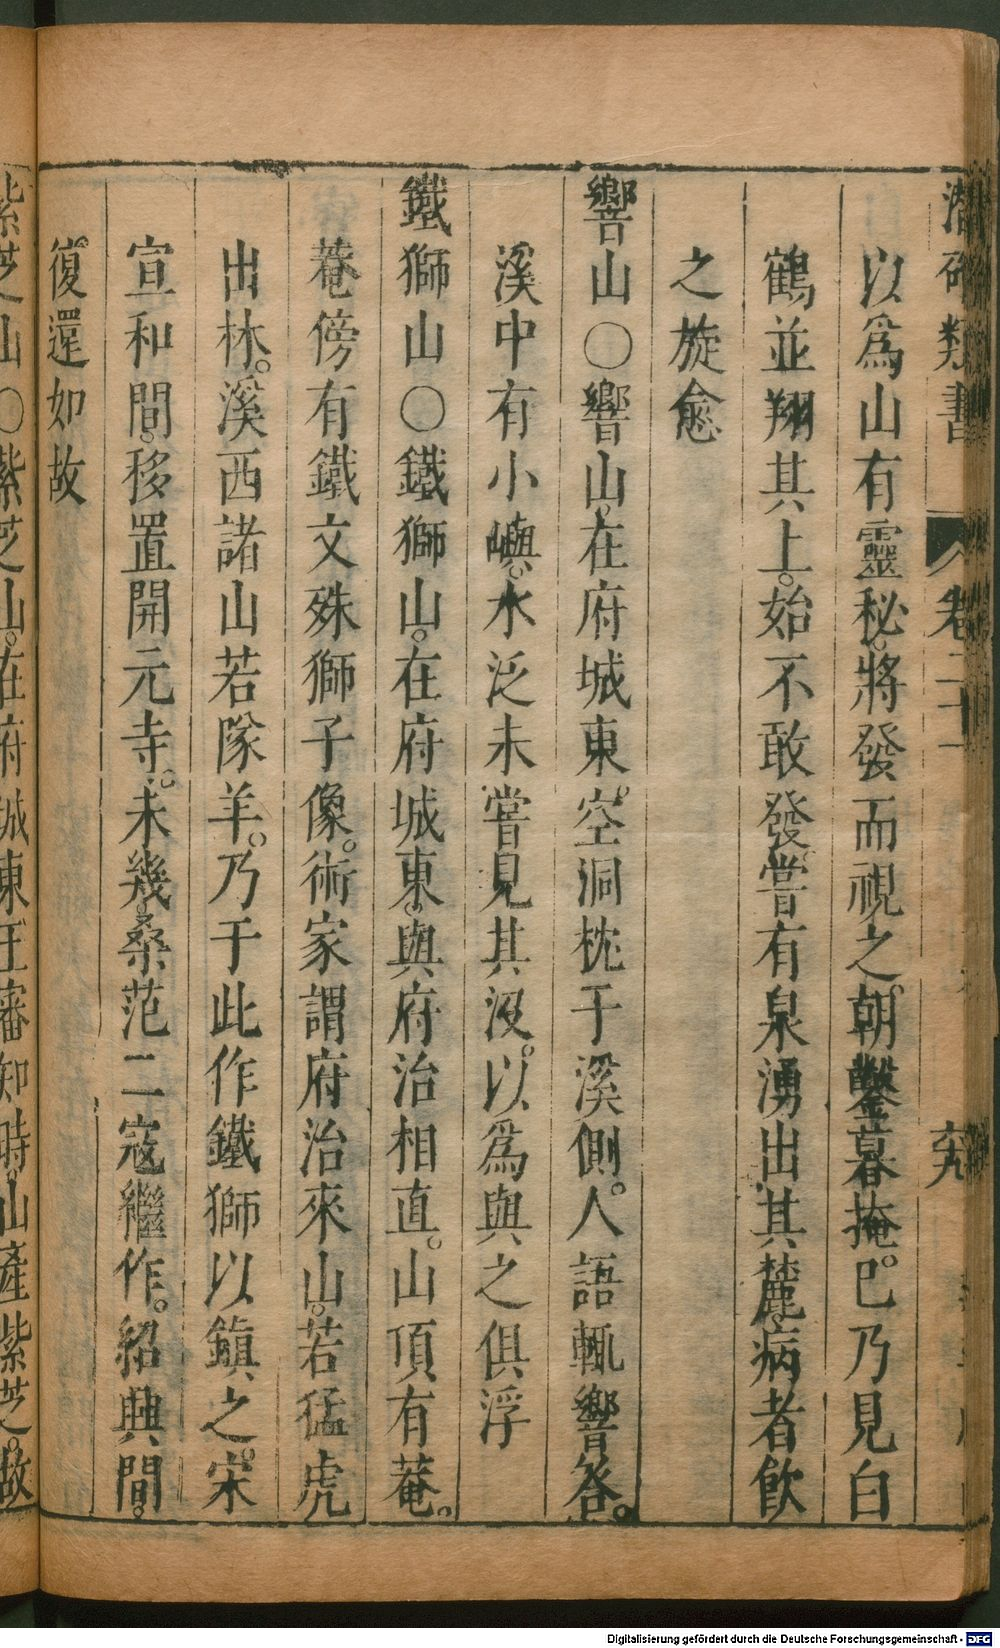 潛確類書 卷二十一 究
以為山有靈秘。將發而視之。朝鑿暮掩。已乃見白
鶴並翔其上。始不敢發。嘗有泉湧出其麓。病者飲
之旋愈
響山〇響山。在府城東。空洞枕于溪側。人語輒響答。
溪中有小嶼。水泛未嘗見其沒。以為與之俱浮
鐵獅山〇鐵獅山。在府城東。與府治相直。山頂有菴。
菴傍有鐵文殊獅子像。術家謂府治來山。若猛虎
出林。溪西諸山若隊羊。乃于此作鐵獅以鎮之。宋
宣和間。移置開元寺。未幾。桑范二寇繼作。紹興間。
復還如故
紫芝山〇紫芝山。在府城東。王審知時。山產紫芝。故
Digitalisierung gefördert durch die Deutsche Forschungsgemeinschaft - DFG